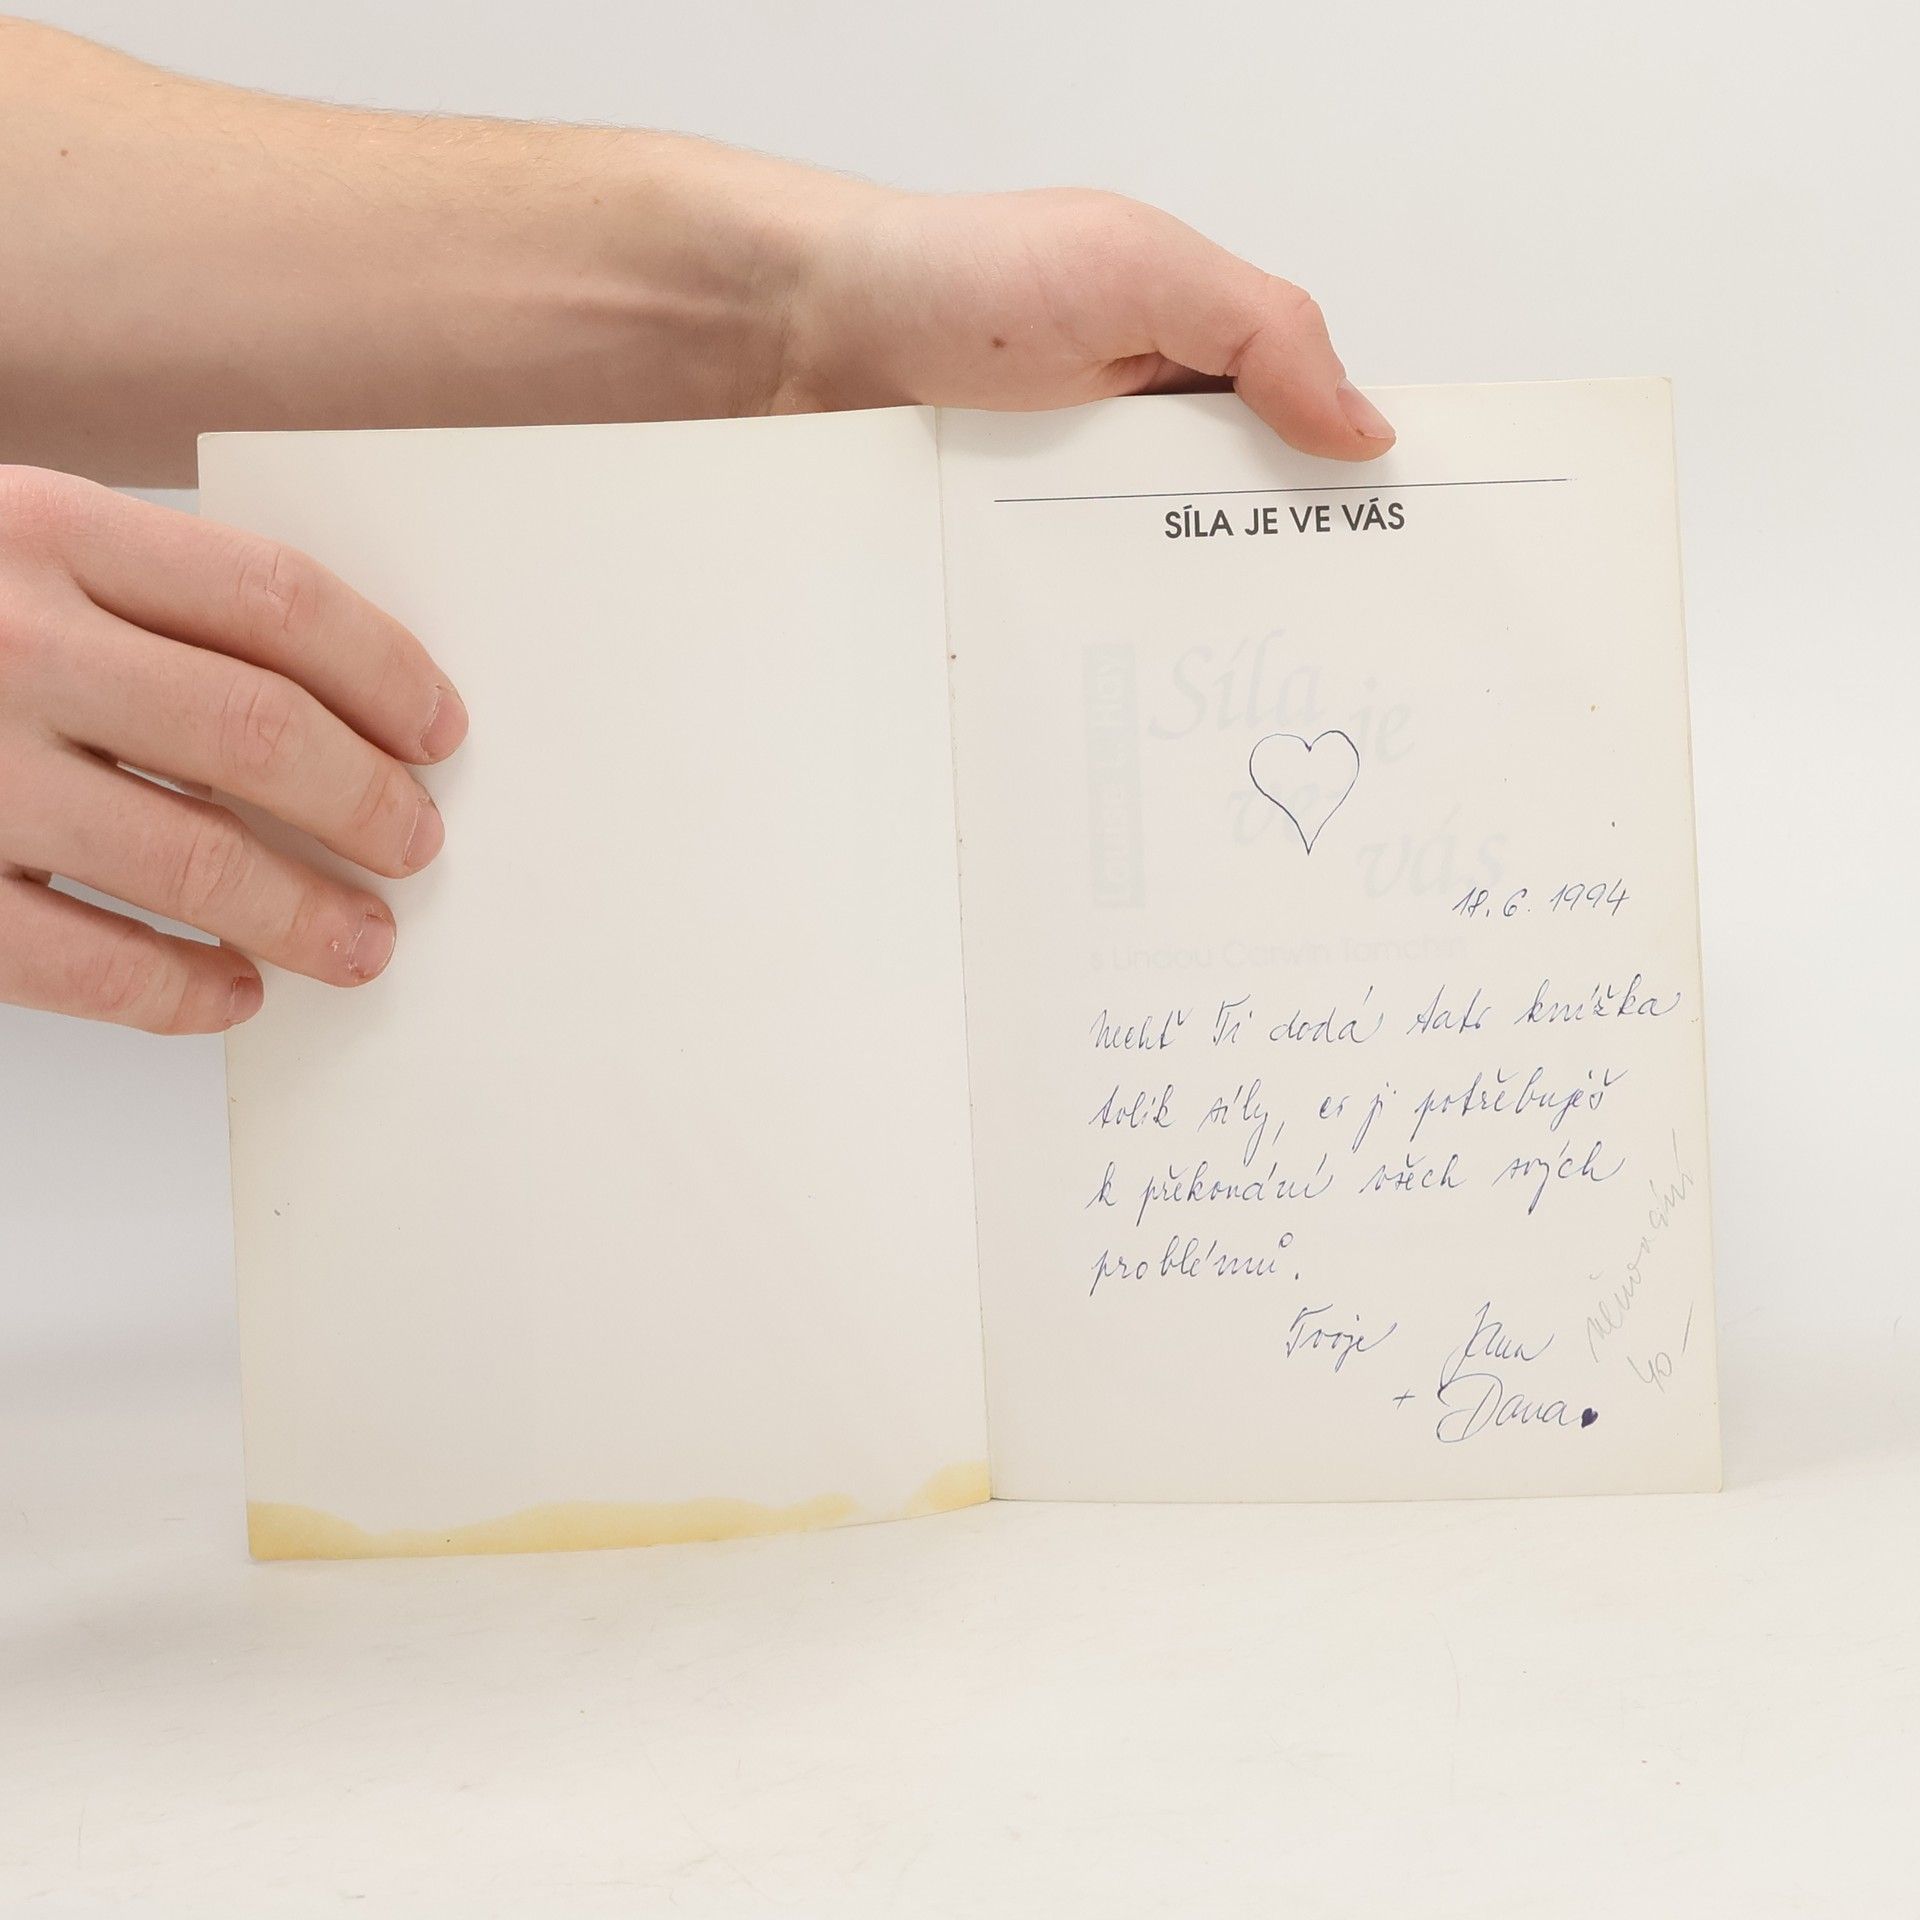 SÍLA JE VE VÁS
Síla je
ve
vás
s Lindou Carwin Tomchin
18. 6. 1994
Nechť Ti dodá tato knížka
tolik síly, co jí potřebuješ
k překonání všech svých
problémů.
Tvoje Jana
+ Dana
40